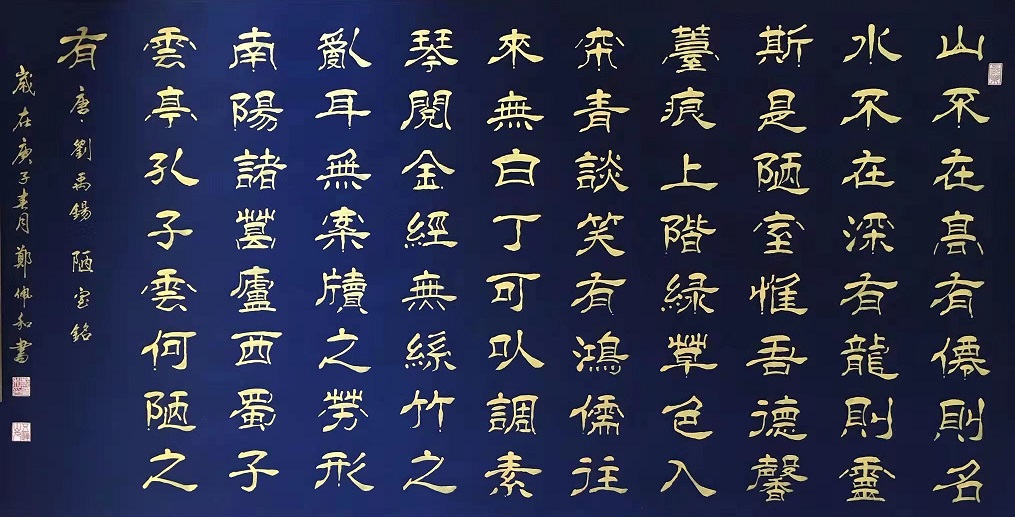 山不在高有僊則名
水不在深有龍則靈
斯是陋室惟吾德馨
薹痕上階緑草色入
帘青談笑有鴻儒往
來無白丁可以調素
琴閱金經無絲竹之
亂耳無案牘之勞形
南陽諸葛廬西蜀子
雲亭孔子雲何陋之
有
唐劉禹錫 陋室銘
歲在庚子春月鄭佩和書